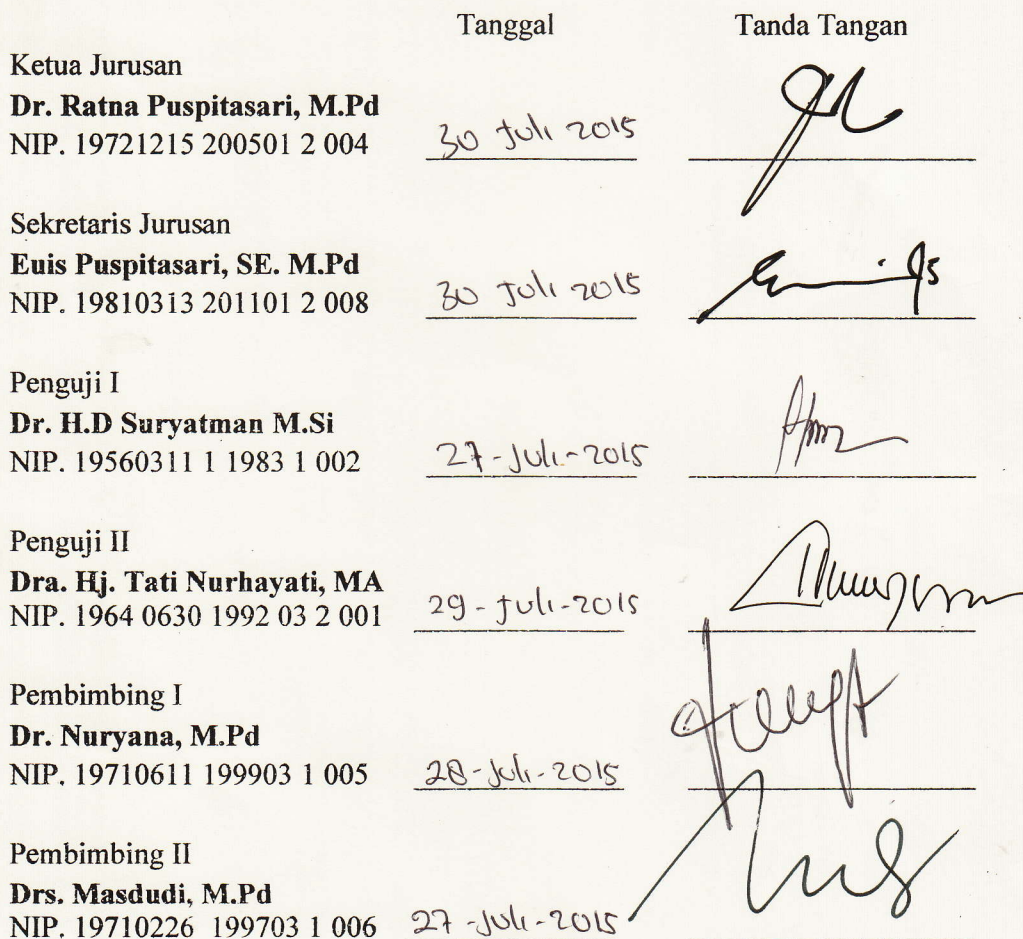 Tanggal Tanda Tangan
Ketua Jurusan
Dr. Ratna Puspitasari, M.Pd
NIP. 19721215 200501 2 004 30 Juli 2015
Sekretaris Jurusan
Euis Puspitasari, SE. M.Pd
NIP. 19810313 201101 2 008 30 Juli 2015
Penguji I
Dr. H.D Suryatman M.Si
NIP. 19560311 1 1983 1 002 27-Juli-2015
Penguji II
Dra. Hj. Tati Nurhayati, MA
NIP. 1964 0630 1992 03 2 001 29-Juli-2015
Pembimbing I
Dr. Nuryana, M.Pd
NIP. 19710611 199903 1 005 28-Juli-2015
Pembimbing II
Drs. Masdudi, M.Pd
NIP. 19710226 199703 1 006 27-Juli-2015